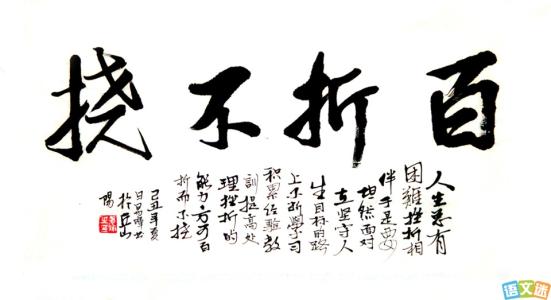 百折不挠
人生总有
困難挫折相
伴于是要
坦然面对
在坚守人
生目标的路
上不断学习
积累经验教
训提高处
理挫折的
能力方可百
折而不挠
己丑年夏
语文迷